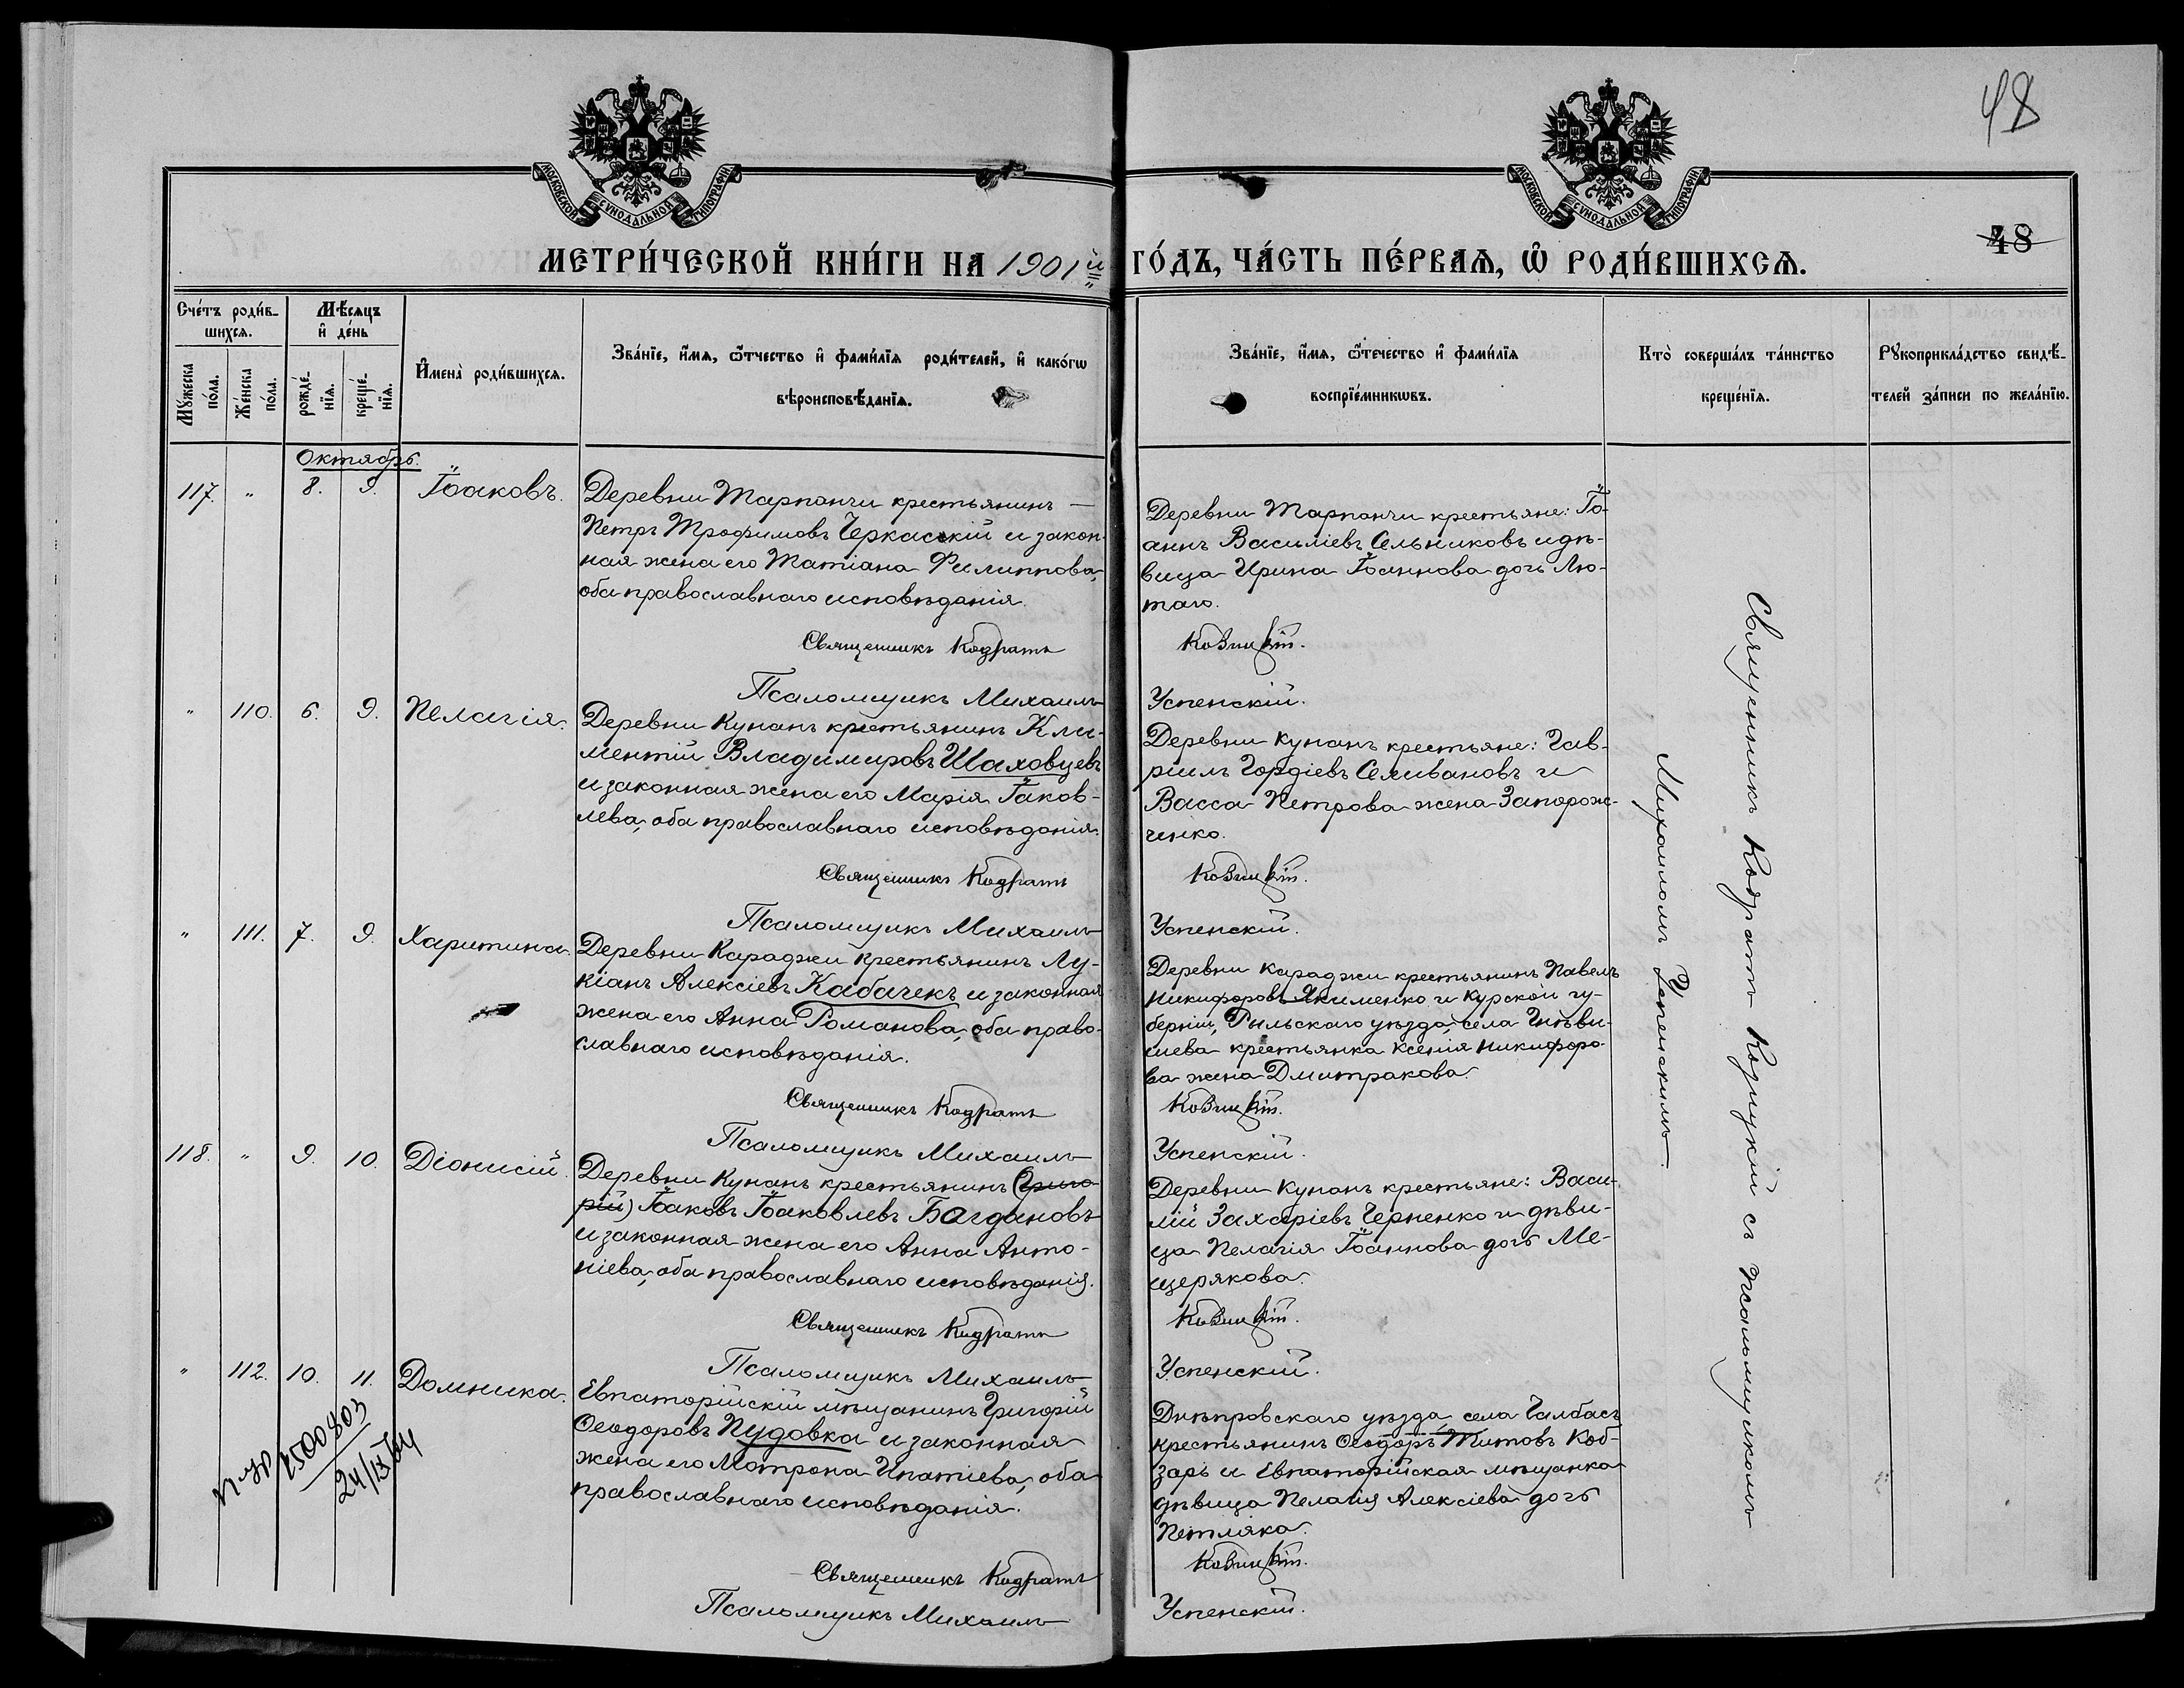 48
МОСКОВСКОЙ СѴНОДАЛЬНОЙ ТИПОГРАФІИ
МОСКОВСКОЙ СѴНОДАЛЬНОЙ ТИПОГРАФІИ
48
МЕТРИ́ЧЕСКОЙ КНИ́ГИ НА 1901й ГО́ДЪ, ЧА́СТЬ ПЕ́РВАѦ, Ѡ РОДИ́ВШИХСѦ.
Сче́тъ роди́в-
шихсѧ.
Мꙋ́жеска по́ла.
Же́нска по́ла.
Мѣ́сѧцъ
и де́нь
рожде́-
нїѧ.
креще́-
нїѧ.
Имена̀ роди́вшихсѧ.
Зва́нїе, и́мѧ, ѻ́тчество и фами́лїѧ роди́телей, и како́гѡ
вѣроисповѣ́данїѧ.
Зва́нїе, и́мѧ, ѻ́течество и фами́лїѧ
воспрїе́мникѡвъ.
Кто̀ соверша́лъ та́инство
креще́нїѧ.
Рꙋкоприкла́дство свидѣ́-
телей за́писи по жела́нїю.
Октябрь.
117. " 8. 9. Іаковъ.
Деревни Тарпанчи крестьянинъ —
Петръ Трофимовъ Черкаскій и закон-
ная жена его Татіана Филиппова,
оба православнаго исповѣданія.
Священникъ Кодратъ
Псаломщикъ Михаилъ
Деревни Тарпанчи крестьяне: Іо-
аннъ Василіевъ Сельниковъ и дѣ-
вица Ирина Іоаннова дочь Лю-
таго.
Козицкій.
Успенскій.
" 110. 6. 9. Пелагія.
Деревни Кунанъ крестьянинъ Кли-
ментій Владимировъ Шаховцевъ
и законная жена его Марія Іаков-
лева, оба православнаго исповѣданія.
Священникъ Кодратъ
Псаломщикъ Михаилъ
Деревни Кунанъ крестьяне: Гав-
ріилъ Гордіевъ Селивановъ и
Васса Петрова жена Запорож-
ченко.
Козицкій.
Успенскій.
" 111. 7. 9. Харитина.
Деревни Караджи крестьянинъ Лу-
кіанъ Алексіевъ Кабачекъ и законная
жена его Анна Романова, оба право-
славнаго исповѣданія.
Священникъ Кодратъ
Псаломщикъ Михаилъ
Деревни Караджи крестьянинъ Павелъ
Никифоровъ Якименко и Курской гу-
берніи, Рыльскаго уѣзда, села
крестьянка Ксенія Никифоро-
ва жена Дмитракова.
Козицкій.
Успенскій.
118. " 9. 10. Діонисій.
Деревни Кунанъ крестьянинъ (Григо-
рій) Іаковъ Іаковлевъ Богдановъ
и законная жена его Анна Анто-
ніева, оба православнаго исповѣданія.
Священникъ Кодратъ
Псаломщикъ Михаилъ
Деревни Кунанъ крестьяне: Васи-
лій Захаріевъ Черненко и дѣви-
ца Пелагія Іоаннова дочь Ме-
щерякова.
Козицкій.
Успенскій.
" 112. 10. 11. Домника.
Евпаторійскій мѣщанинъ Григорій
Ѳеодоровъ Пудовка и законная
жена его Мотрона Ипатіева, оба
православнаго исповѣданія.
Священникъ Кодратъ
Псаломщикъ Михаилъ
Днѣпровскаго уѣзда, села Чалбасъ
крестьянинъ Ѳеодоръ Титовъ Коб-
зарь и Евпаторійская мѣщанка
дѣвица Пелагія Алексіева дочь
Петляка.
Козицкій.
Успенскій.
Священникъ Кодратъ Козицкій съ псаломщикомъ
Михаиломъ Успенскимъ.
1500803
24/IX/64